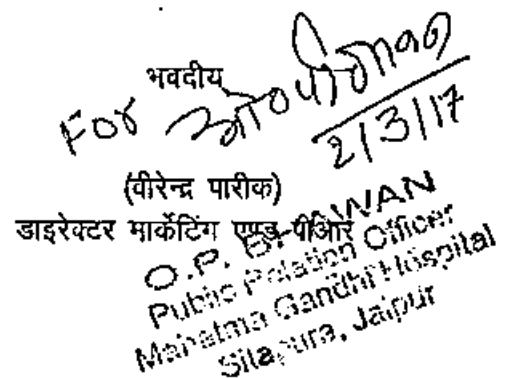 भवदीय
For ओ०पी०भवन
2/3/17
(वीरेन्द्र पारीक)
डाइरेक्टर मार्केटिंग एण्ड पीआर
O.P. BHAWAN
Public Relation Officer
Mahatma Gandhi Hospital
Sitapura, Jaipur